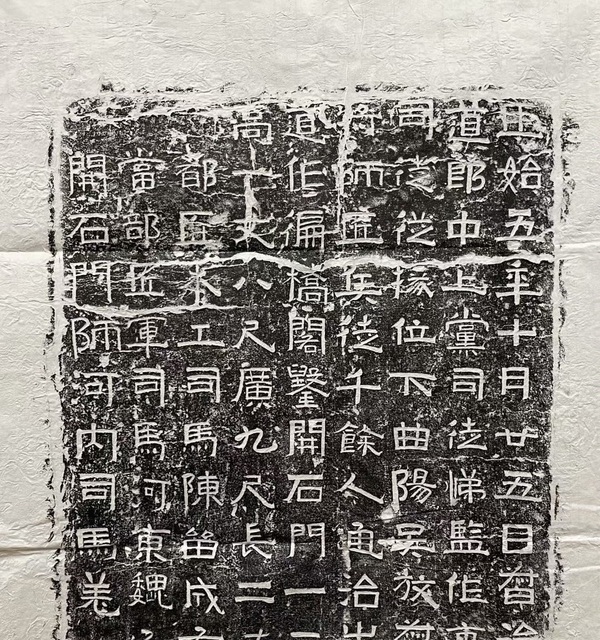 正始五年十月廿五日督治
道郎中上黨司徒悌監作吏
司徒從掾位下曲陽吳放督
將師匠兵徒千餘人通治
道作徧橋閣鑿開石門一
高一丈八尺廣九尺長二
都匠木工司馬陳留成
當部匠軍司馬河東魏
開石門師河內司馬羌